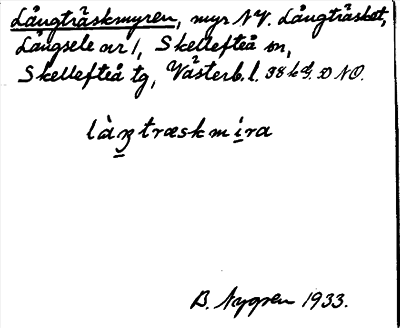 Långträskmyren, myr NV. Långträsket,
Långsele nr 1, Skellefteå sn,
Skellefteå tg, Västerb. l. 38 kd. D NO.
làŋtræskmira
B. Nygren 1933.